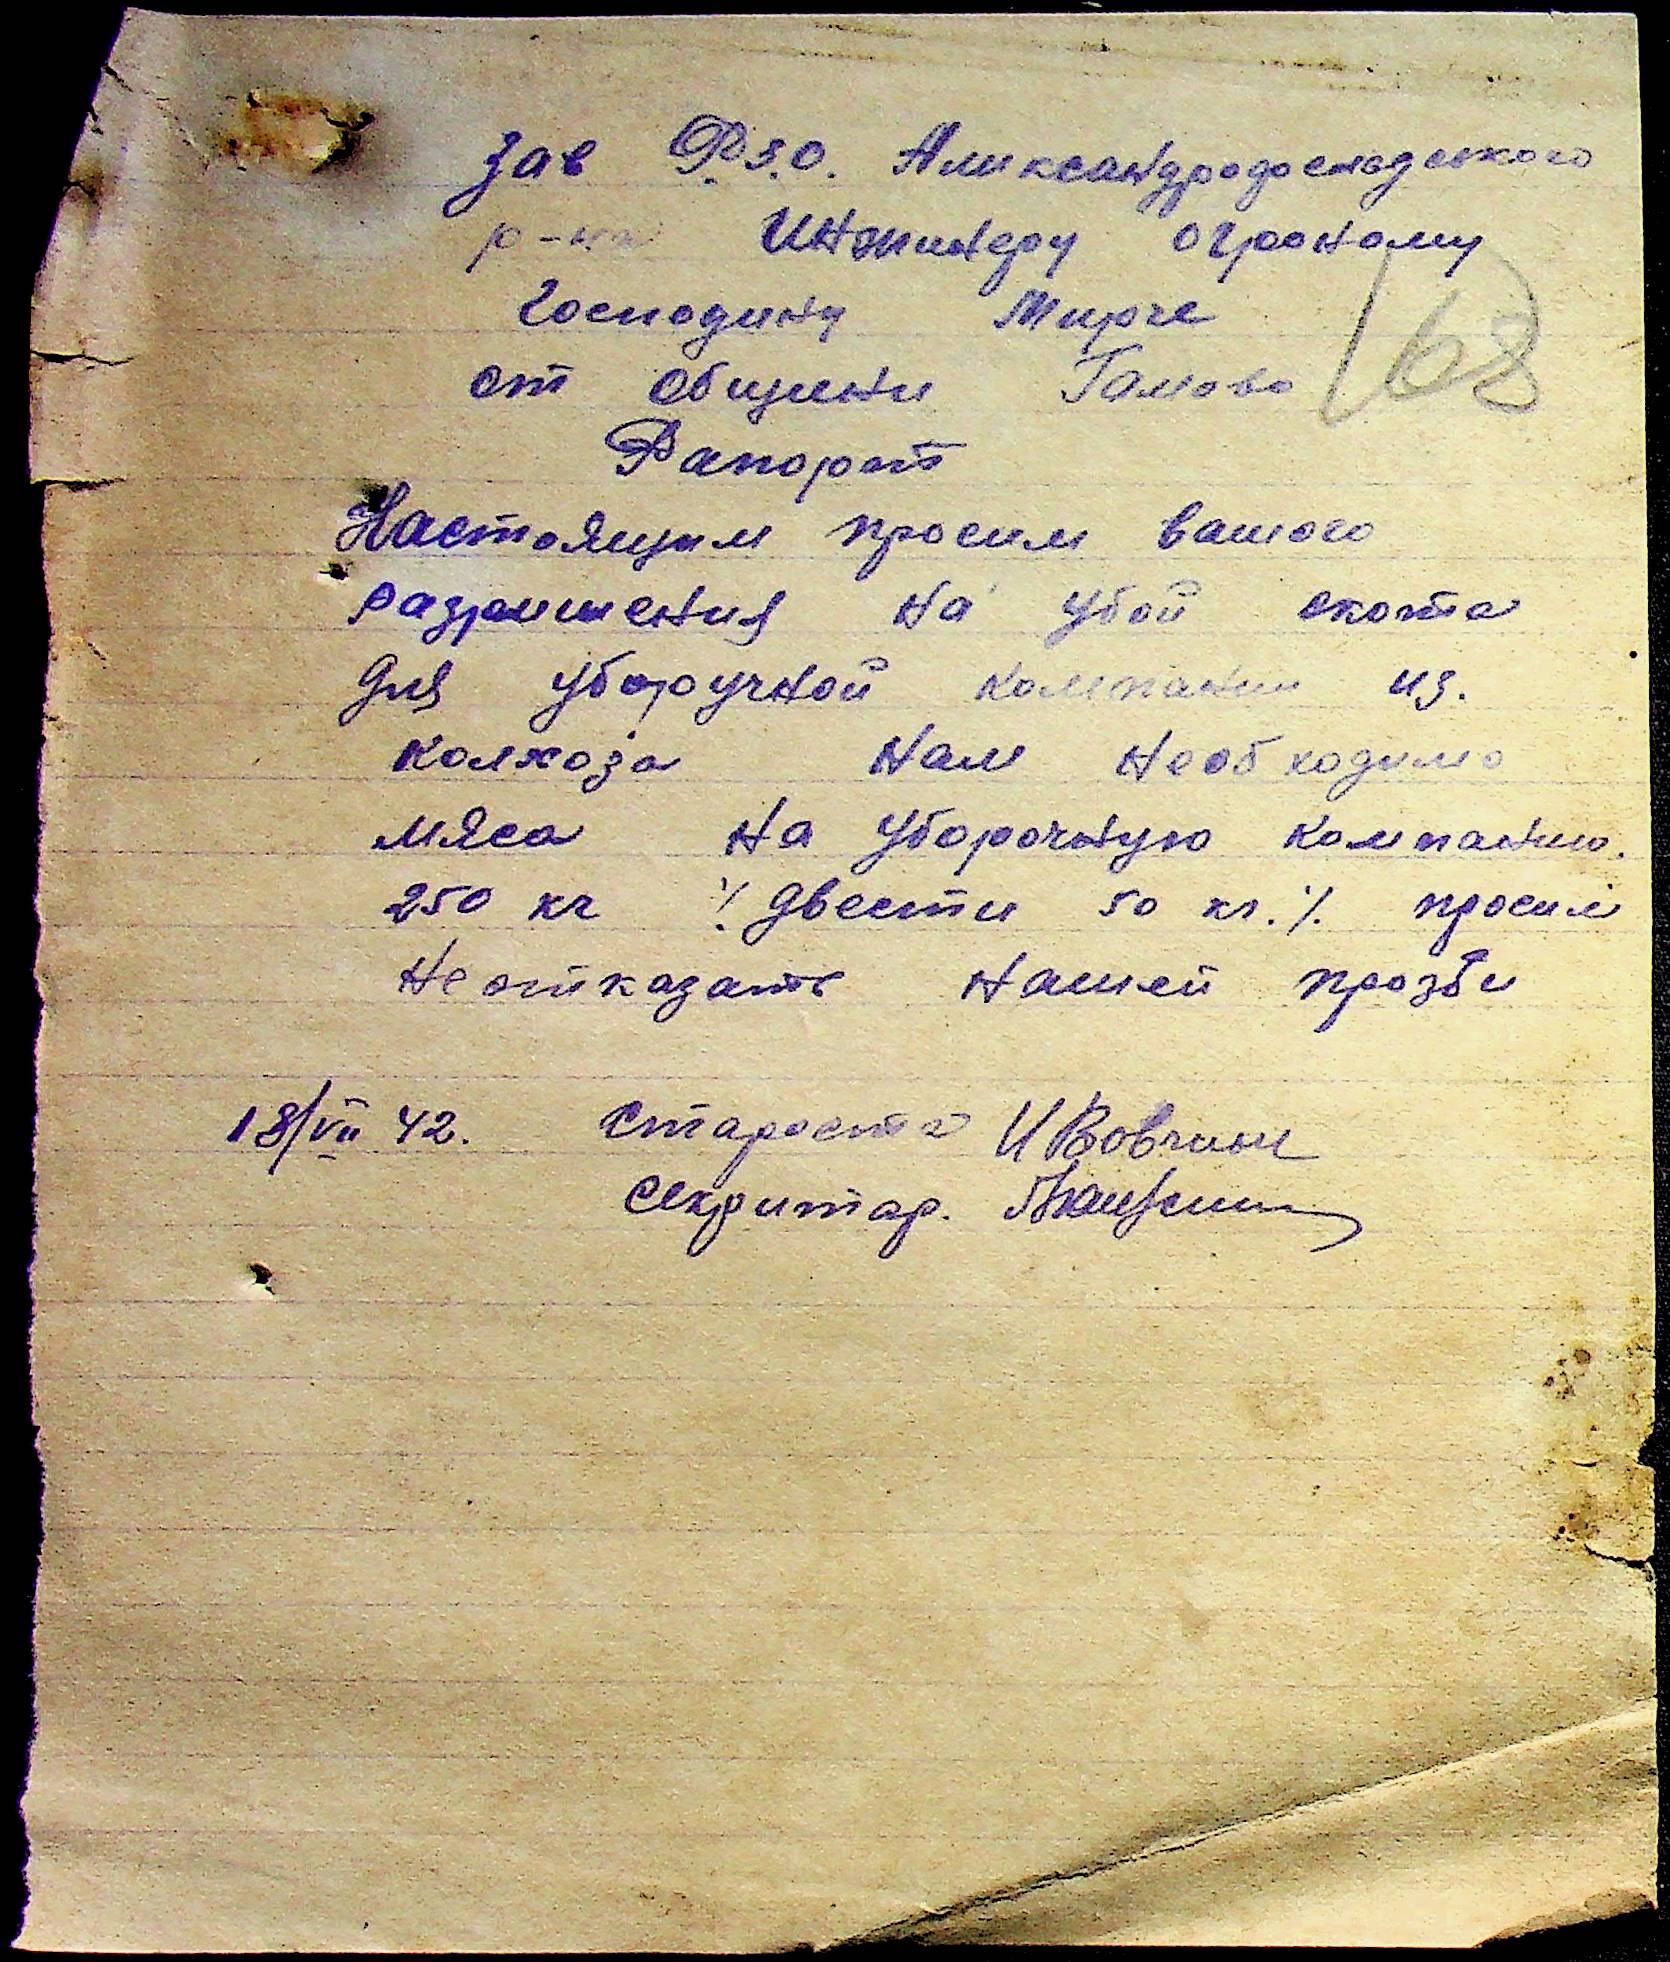 Зав Р.З.О. Аликсандродосмадського
р-на Инжинеру огроному
Господину Мирче
68
от общини Гамово
Рапорт
Настоящим просим вашого
разришения на убой скота
для уборучной компании из.
колхоза нам необходимо
мяса на уборочную компанию.
250 кг ·/. двести 50 кг. ·/. просим
не отказать нашей прозби
18/VII 42. Староста И Вовчин
Секритар.